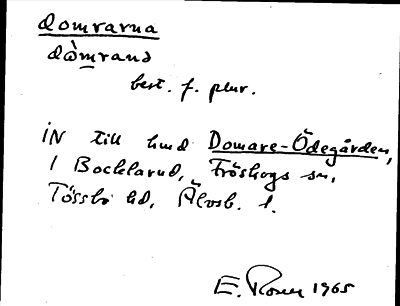 domrarna
dòmrand
best. f. plur.
IN till hmd Domare-Ödegården,
1 Bocklarud, Fröskogs sn,
Tössbo hd, Älvsb. l.
E. Rosen 1965